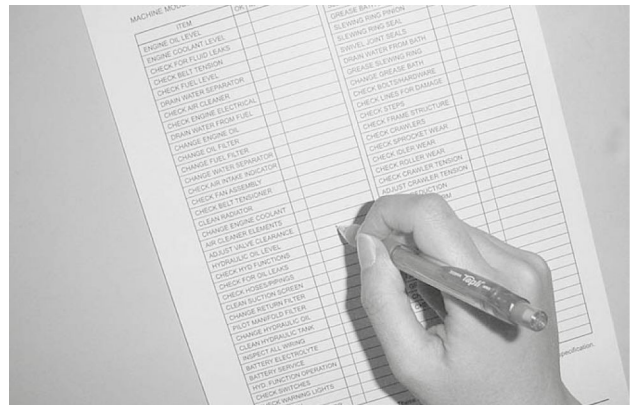 MACHINE MODEL
ITEM
OK
ENGINE OIL LEVEL
ENGINE COOLANT LEVEL
CHECK FOR FLUID LEAKS
CHECK BELT TENSION
CHECK FUEL LEVEL
DRAIN WATER SEPARATOR
CHECK AIR CLEANER
CHECK ENGINE ELECTRICAL
DRAIN WATER FROM FUEL
CHANGE ENGINE OIL
CHANGE OIL FILTER
CHANGE FUEL FILTER
CHANGE WATER SEPARATOR
CHECK AIR INTAKE INDICATOR
CHECK FAN ASSEMBLY
CHECK BELT TENSIONER
CLEAN RADIATOR
CHANGE ENGINE COOLANT
AIR CLEANER ELEMENTS
ADJUST VALVE CLEARANCE
HYDRAULIC OIL LEVEL
CHECK HYD FUNCTIONS
CHECK FOR OIL LEAKS
CHECK HOSES/PIPINGS
CLEAN SUCTION SCREEN
CHANGE RETURN FILTER
PILOT MANIFOLD FILTER
CHANGE HYDRAULIC OIL
CLEAN HYDRAULIC TANK
INSPECT ALL WIRING
BATTERY ELECTROLYTE
BATTERY SERVICE
HYD. FUNCTION OPERATION
CHECK SWITCHES
CHECK WARNING LIGHTS
GREASE BATH
SLEWING RING PINION
SLEWING RING SEAL
SWIVEL JOINT SEALS
DRAIN WATER FROM BATH
GREASE SLEWING RING
CHANGE GREASE BATH
CHECK BOLTS/HARDWARE
CHECK LINES FOR DAMAGE
CHECK STEPS
CHECK FRAME STRUCTURE
CHECK CRAWLERS
CHECK SPROCKET WEAR
CHECK IDLER WEAR
CHECK ROLLER WEAR
CHECK CRAWLER TENSION
ADJUST CRAWLER TENSION
specification.